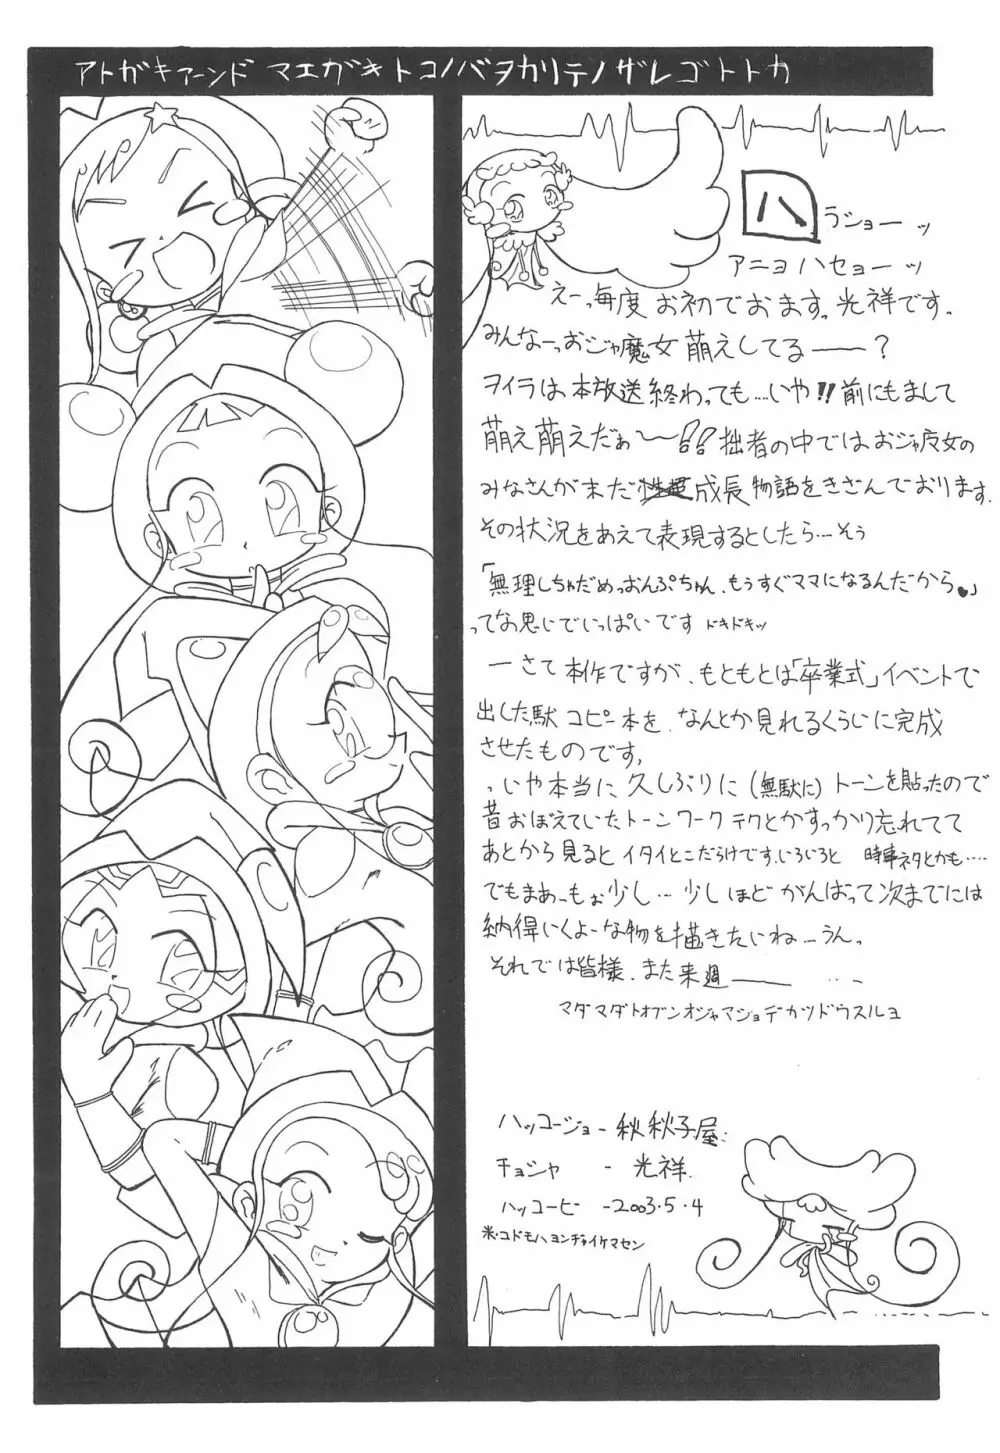 アトガキアーンド マエガキトコノバヲカリテノザレゴトトカ
ハラショーッ
アニョハセヨーッ
えーっ毎度お初でおます。光祥です。
みんなーっおジャ魔女萌えしてるー?
ヲイラは本放送終わっても…いや!!前にもまして
萌え萌えだぁ〜!!拙者の中ではおジャ魔女の
みなさんが未だ成長物語をきざんでおります。
その状況をあえて表現するとしたら…そぅ
「無理しちゃだめっおんぷちゃん、もうすぐママになるんだから♥」
ってな思いでいっぱいです ドキドキッ
ーさて本作ですが、もともとは「卒業式」イベントで
出した駄コピー本を、なんとか見れるくらいに完成
させたものです。
、いや本当に久しぶりに(無駄に)トーンを貼ったので
昔おぼえていたトーンワークテクとかすっかり忘れてて
あとから見るとイタイとこだらけです。いろいろと 時事ネタとかも….
でもまあーもぉ少し…少しほどがんばって次までには
納得いくよーな物を描きたいね…うん。
それでは皆様、また来週ー …
マダマダトオブンオジャマジョデカツドウスルヨ
ハッコージョー秋秋子屋
チョシャ - 光祥
ハッコービ - 2003.5.4
米・コドモハヨンヂャイケマセン